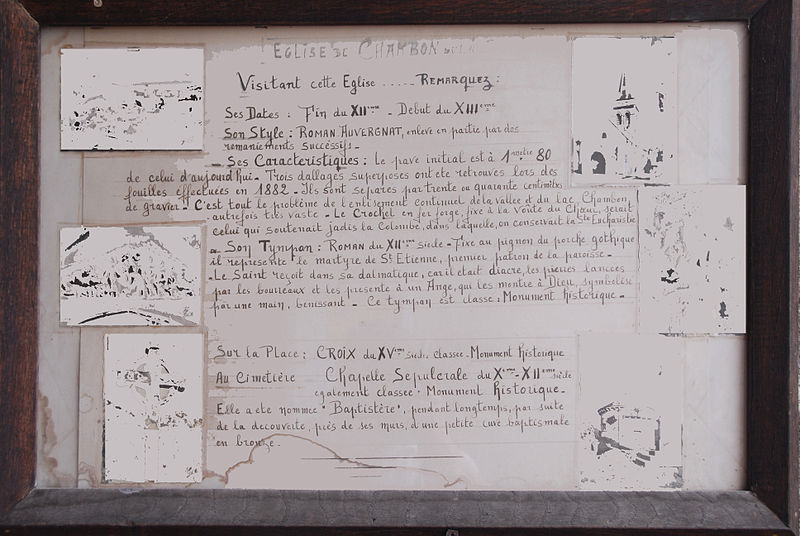 EGLISE DE CHAMBON
Visitant cette Eglise ..... REMARQUEZ :
Ses Dates : Fin du XIIème - Debut du XIIIème
Son Style : ROMAN AUVERGNAT, enlevé en partie par des
remaniements successifs -
- Ses Caractéristiques : Le pavé initial est à 1 mètre 80
de celui d'aujourd'hui - Trois dallages superposés ont été retrouvés lors des
fouilles effectuées en 1882 - Ils sont séparés par trente ou quarante centimètres
de gravier - C'est tout le problème de l'enlisement continuel de la vallée et du lac Chambon,
autrefois très vaste - Le Crochet en fer forgé, fixé à la voûte du Chœur, serait
celui qui soutenait jadis la Colombe, dans laquelle, on conservait la Ste Eucharistie
- Son Tympan : ROMAN du XIIème siècle - Fixé au pignon du porche gothique
il représente le martyre de St Etienne, premier patron de la paroisse -
- Le Saint reçoit dans sa dalmatique, car il était diacre, les pierres lancées
par les bourreaux et les présente à un Ange, qui les montre à DIEU, symbolisé
par une main, bénissant - Ce tympan est classé : Monument historique -
Sur la Place : CROIX du XVème siècle classée - Monument historique
Au Cimetière Chapelle Sépulcrale du Xe - XIIème siècle
également classée "Monument historique -
Elle a été nommée "Baptistère", pendant longtemps, par suite
de la découverte, près de ses murs, d'une petite cuve baptismale
en bronze -